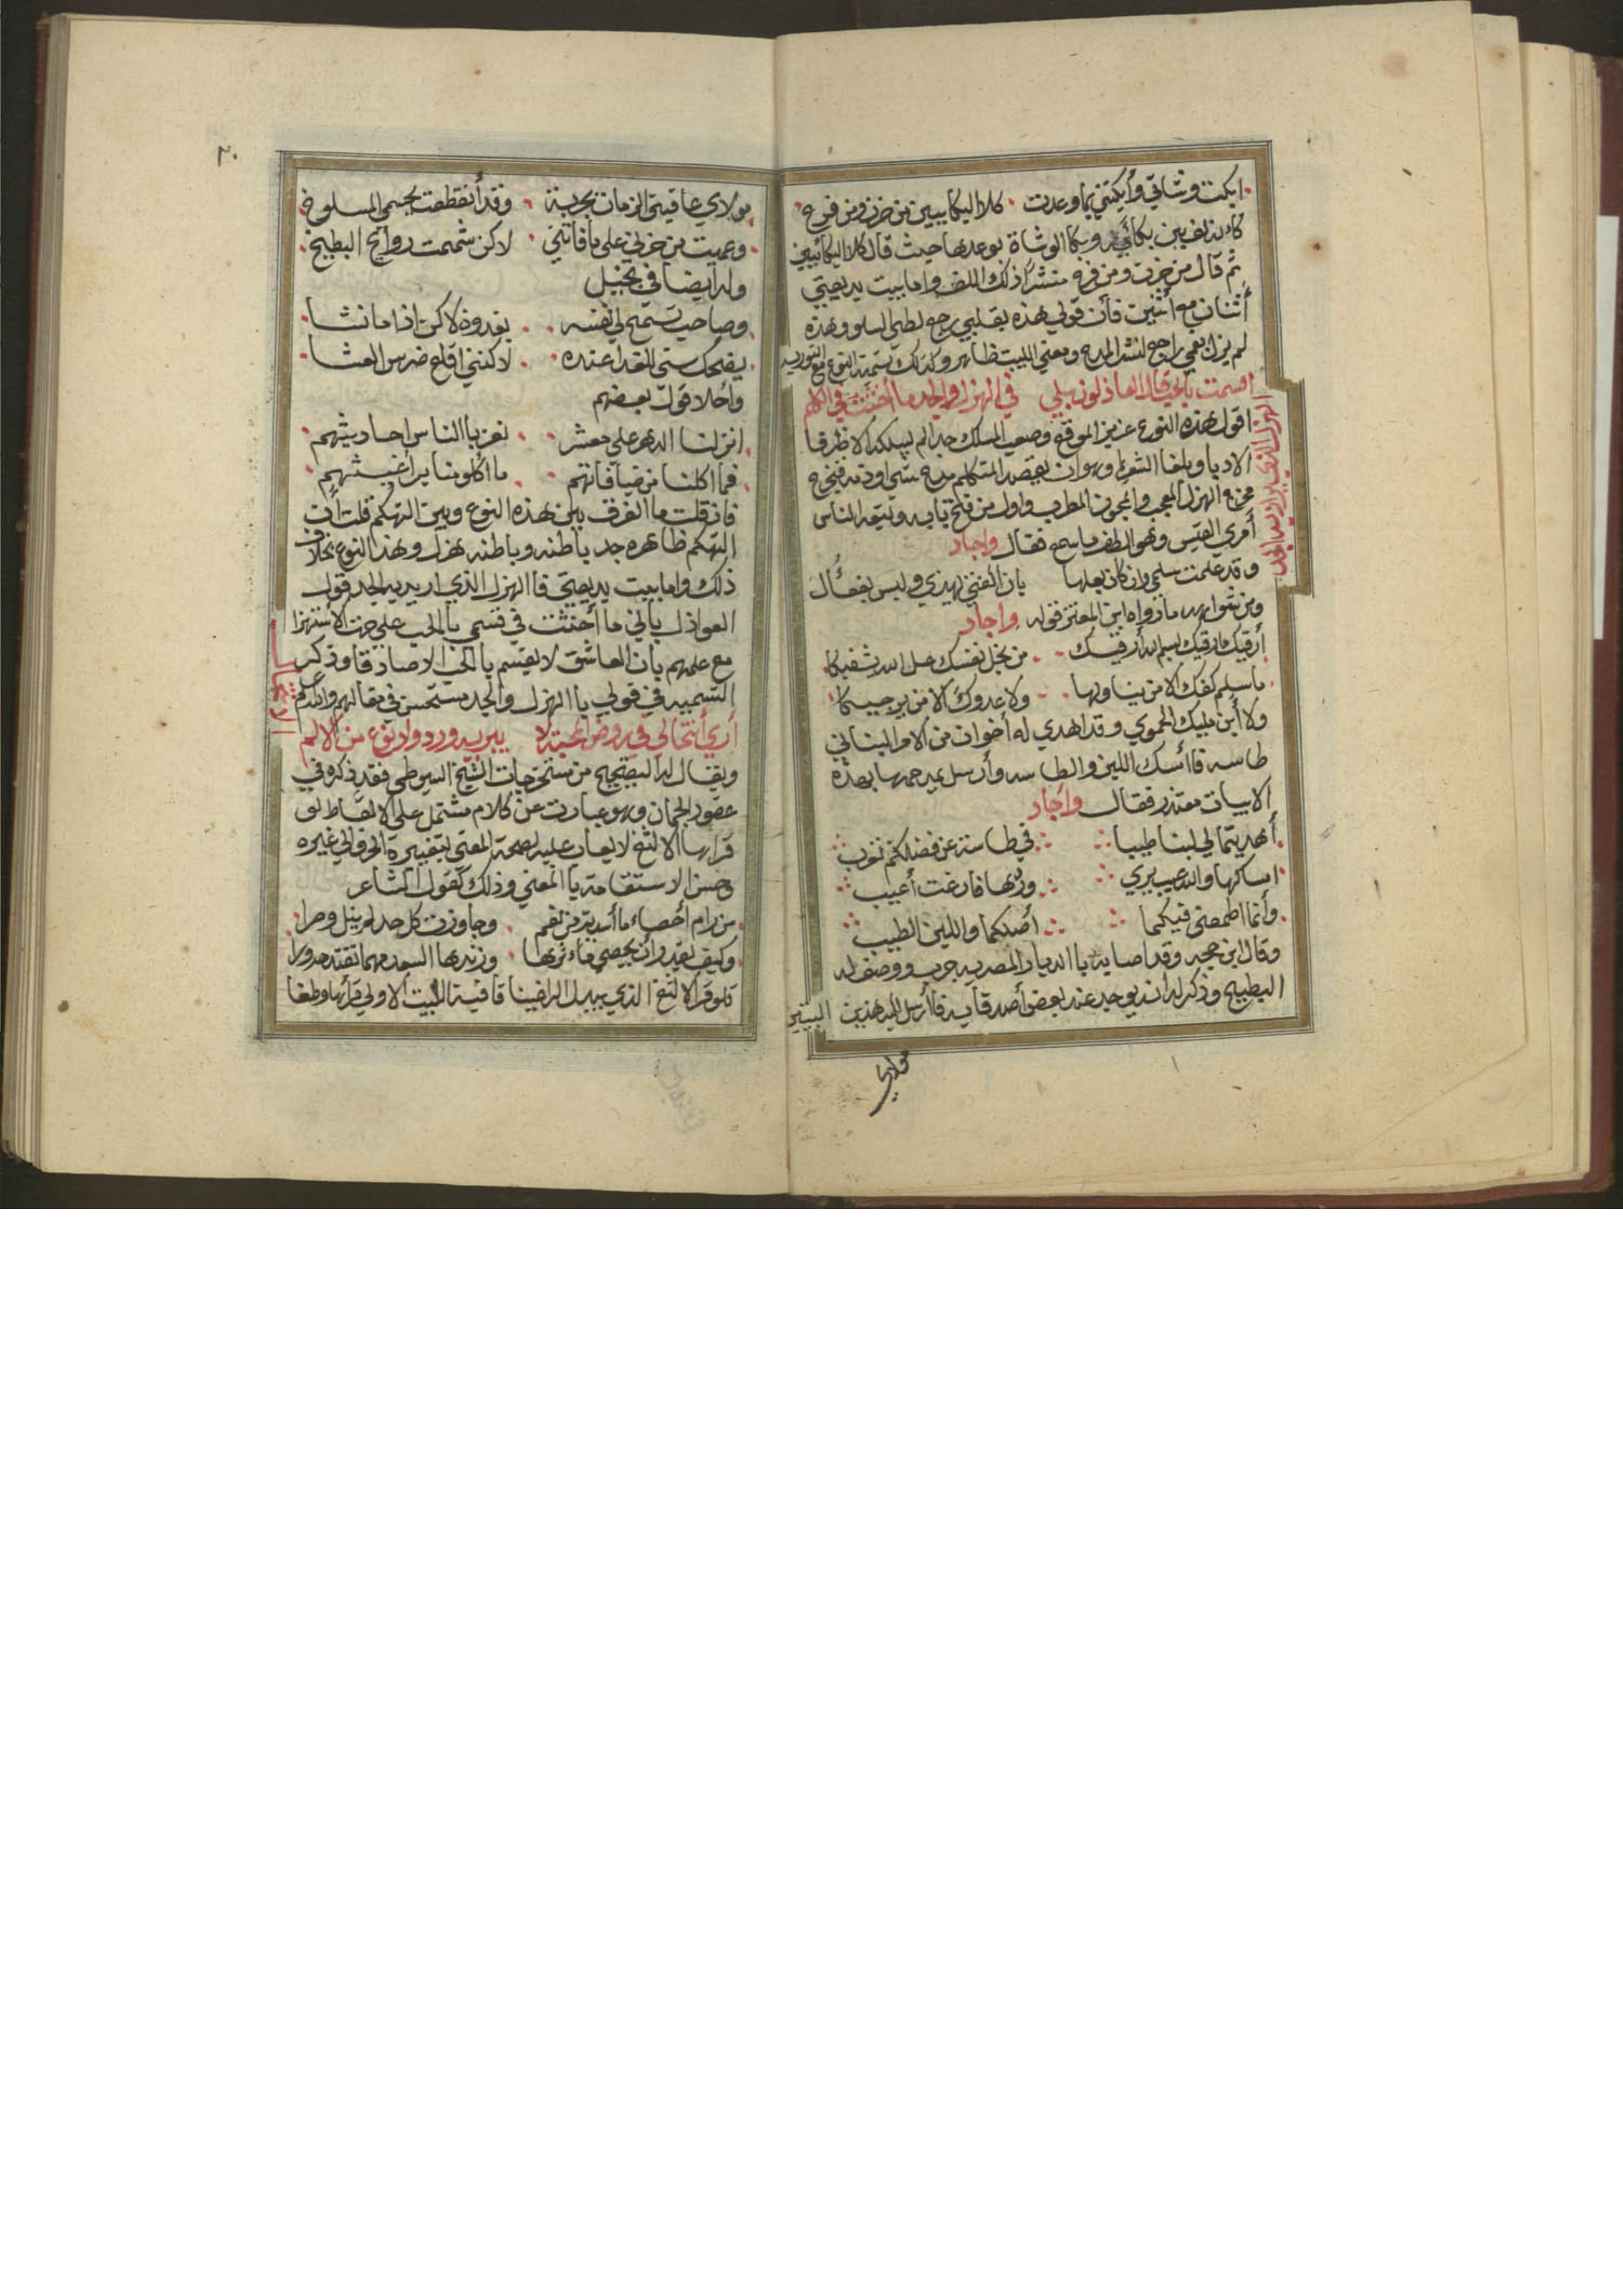 ابكت وشاتي وأبكتني بما وعدت كلا البكاءيين من حزن ومن فرح
كانه لف بين بكائي وبكا الوشاة بوعدها حيث قال كلا البكائين
ثم قال من حزن ومن فرح منشرا ذلك اللف واما بيت بديعيتي
أثنان مع أثنين فأن قولي هذه بقلبي راجع لطي السلو وهذه
لم يزل بفمي راجع لنشر المدح ومعني البيت ظاهر وكذلك تسمية النوع مع التوريه
اقسمت بالحب قال العاذلون بلي في الهزل والجد ما أحنثت في الكلم
الهزل الذي يراد به الجد
اقول هذه النوع عزيز الموقع وصعب المسلك جدا لم يسلكه الا ظرفا
الادبا وبلغا الشعرا وهو ان يقصد المتكلم مدح شي او ذمه فيخرج
مخرج الهزل المعجب والمجون المطرب واول من فتح بابه وتبعه الناس
أمري القيس وهو الطف ما سمع فقال واجاد
وقد علمت سلمي وان كان بعلها بان الفتي يهذي وليس بفعال
ومن شواهده ما رواه ابن المعتز قوله واجاد
أرقيك ارقيك بسم الله أرقيك من بخل نفسك عل الله يشفيكا
ما سلم كفك الا من يناولها ولا عدوك الا من يرجيكا
ولا أبن مليك الحموي وقد اهدي له أخوان من الامرا لبنا في
طاسه فاأمسك اللبن والطاسه وأرسل غيرهما بهذه
الابيات معتذر فقال وأجاد
أهديتما لي لبنا طيبا في طاسة عن فضلكم تنوب
امساكها والله عيب يري وردها فارغت أعيب
وأنما اطمعني فيكما أصلكما واللبن الطيب
وقال ابن حجه وقد اصابه باالديار المصريه جرب ووصف له
البطيخ وذكر له انه يوجد عند بعض أصدقايه فاأرسل اليه هذين البيتين
مولاي
٢٠
مولاي عاقبني الزمان بجربة وقد أنقطعت بجسمي المسلوخ
وعميت من حزني علي ما فاتني لاكن شممت روائح البطيخ
وله أيضا في بخيل
وصاحب تسمح لي نفسه بغدوة لاكن اذا ما نشا
يضحك سني للغدا عنده لاكنني اقلع ضرس العشا
واحلا قول بعضهم
انزلنا الدهر علي معشر تغر باالناس احاديثهم
فما اكلنا من ضيافاتهم ما اكلو منا براغيثهم
فان قلت ما الفرق بين هذه النوع وبين التهكم قلت أن
التهكم ظاهره جد باطنه وباطنه هزل وهذا النوع بخلاف
ذلك واما بيت بديعيتي فاالهزل الذي اريد به الجد قول
العواذل بأني ما أحنثت في قسمي باالحب علي جهت الاستهزا
مع علمهم بان العاشق لا يقسم باالحب الا صادقا وذكر
التسميه في قولي باالهزل والجد مستحسن في مقالهم والله اعلم
أري أنتحالي في روض المحبة لا يبريه ورد ولا نوع من الالم
ويقال له التفتيح من مستخرجات الشيخ السيوطي فقد ذكره في
عقود الجمان وهو عبارت عن كلام مشتمل علي الالفاظ لو
قراها الالثغ لا يعاب عليه لصحة المعني بتغييرة الحرف الي غيره
وحسن الاستقامة باالمعني وذلك كقول الشاعر
من رام أحصاء ما أسديت من نعم وجاوزت كل حد لم ينل ومرا
وكيف يقدر أن يحصي مأثرها وزندها السعد مهما تقتدحه ورا
فلو قرا الالثغ الذي يبدل الرا غينا قافية البيت الاولي قرأها وطغا